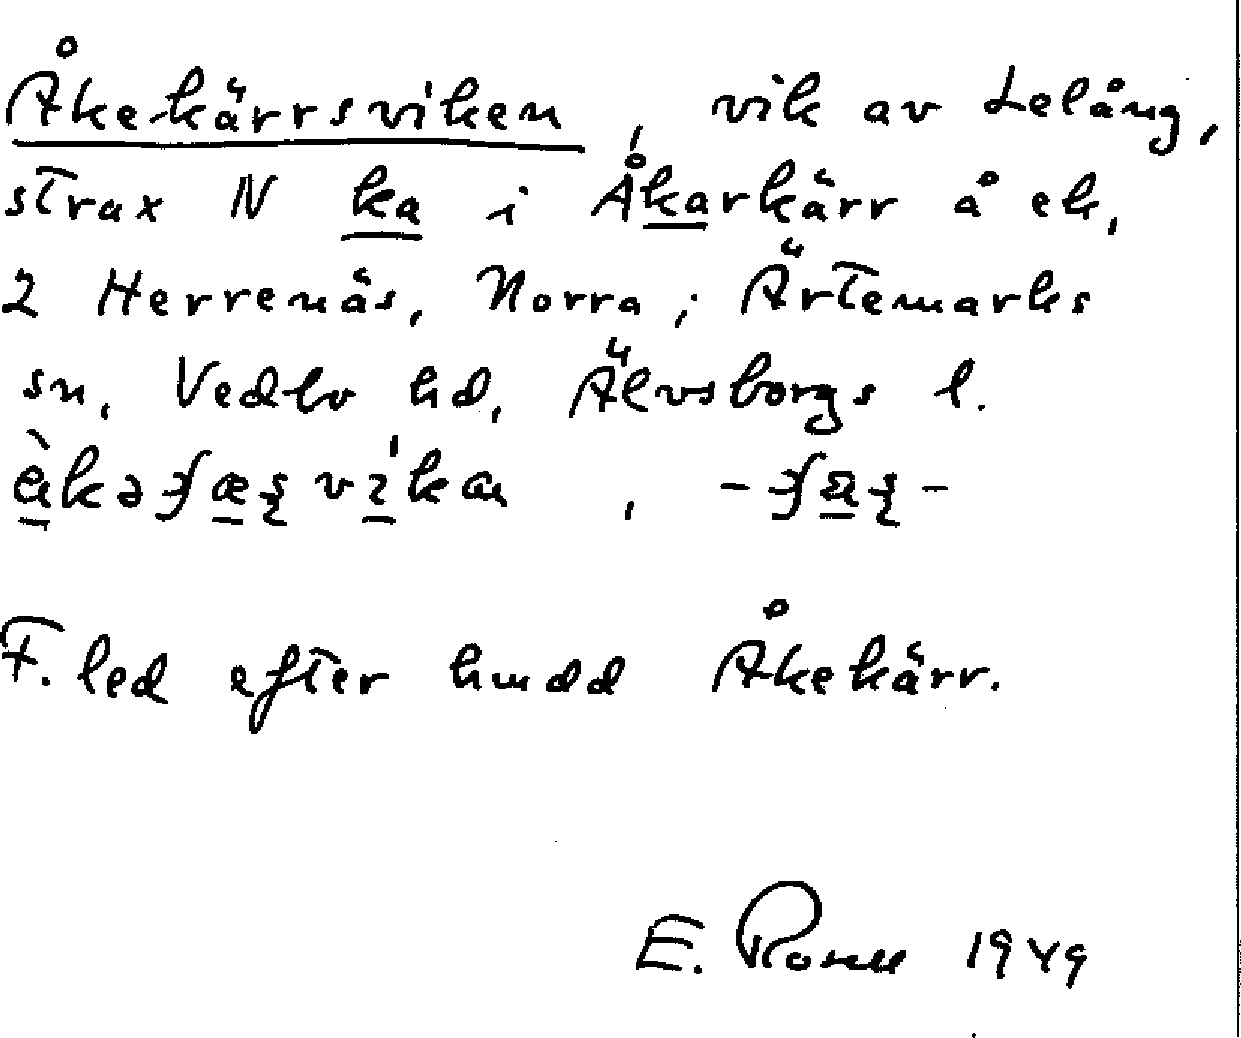 Åkekärrsviken, vik av Lelång,
strax N ka i Åkarkärr å ek.
2 Herrenäs, Norra; Ärtemarks
sn, Vedbo hd, Älvsborgs l.
F. led efter huvud Åkekärr.
E. 1949